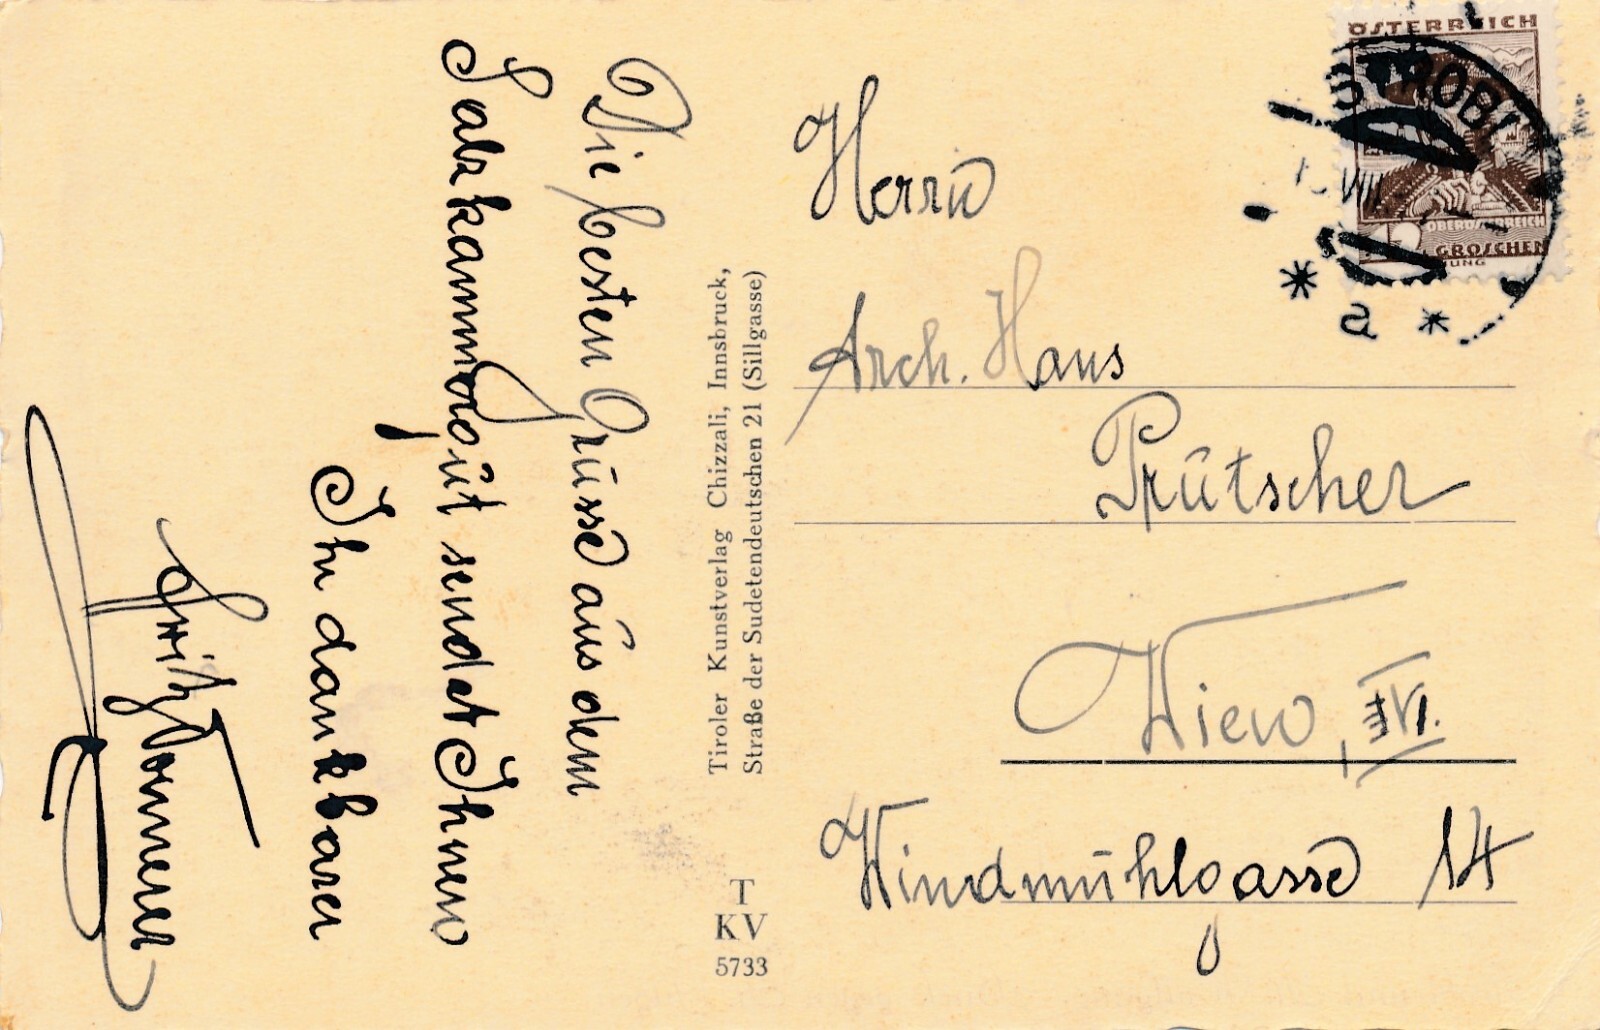 Die besten Grüsse aus dem
Salzkammergut sendet Ihnen
Ihr dankbarer
Fritz
Tiroler Kunstverlag Chizzali, Innsbruck,
Straße der Sudetendeutschen 21 (Sillgasse)
T
KV
5733
ÖSTERREICH
STROBL
VIII
OBEROESTERREICH
GROSCHEN
* a *
Herrn
Arch. Hans
Prutscher
Wien, VI.
Windmühlgasse 14